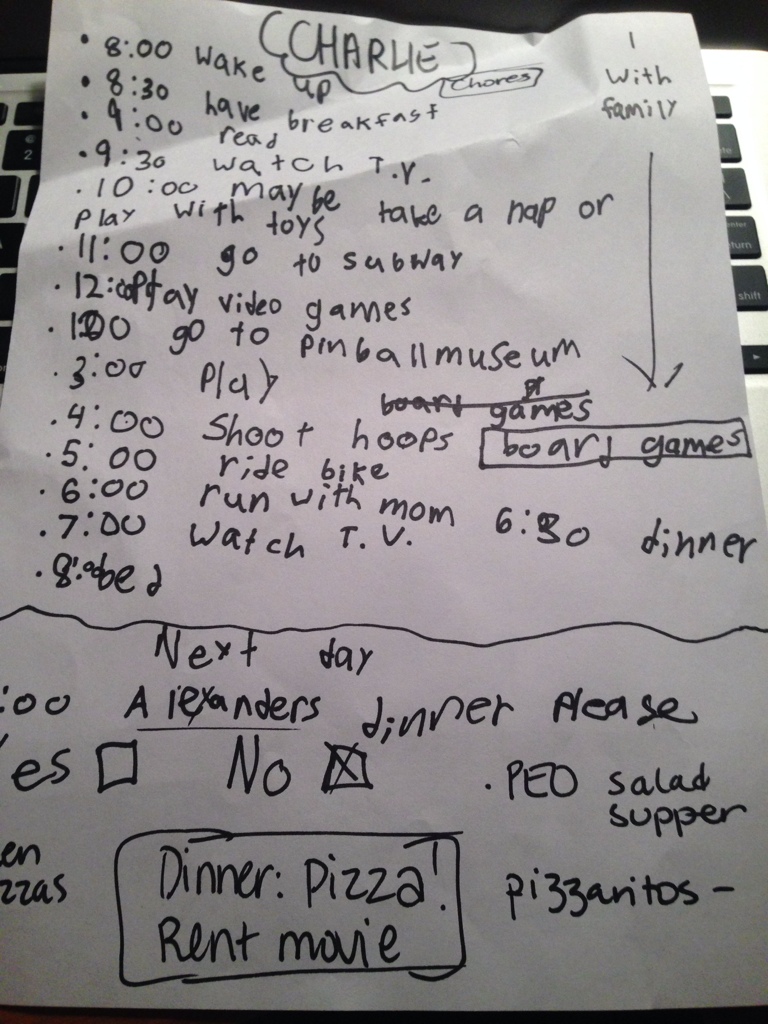 (CHARLIE)
• 8:00 wake up
Chores
1
with
family
• 8:30 have breakfast
• 9:00 read
• 9:30 watch T.V.
• 10:00 may be take a nap or
play with toys
• 11:00 go to subway
• 12:00 play video games
• 1:00 go to pinball museum
• 3:00 play board games
• 4:00 shoot hoops board games
• 5:00 ride bike
• 6:00 run with mom 6:30 dinner
• 7:00 watch T.V.
• 8:00 bed
Next day
:00 Alexanders dinner please
es No
• PEO salad
supper
en
zzas
Dinner: Pizza!
Rent movie
pizzaritos -
2
enter
shift